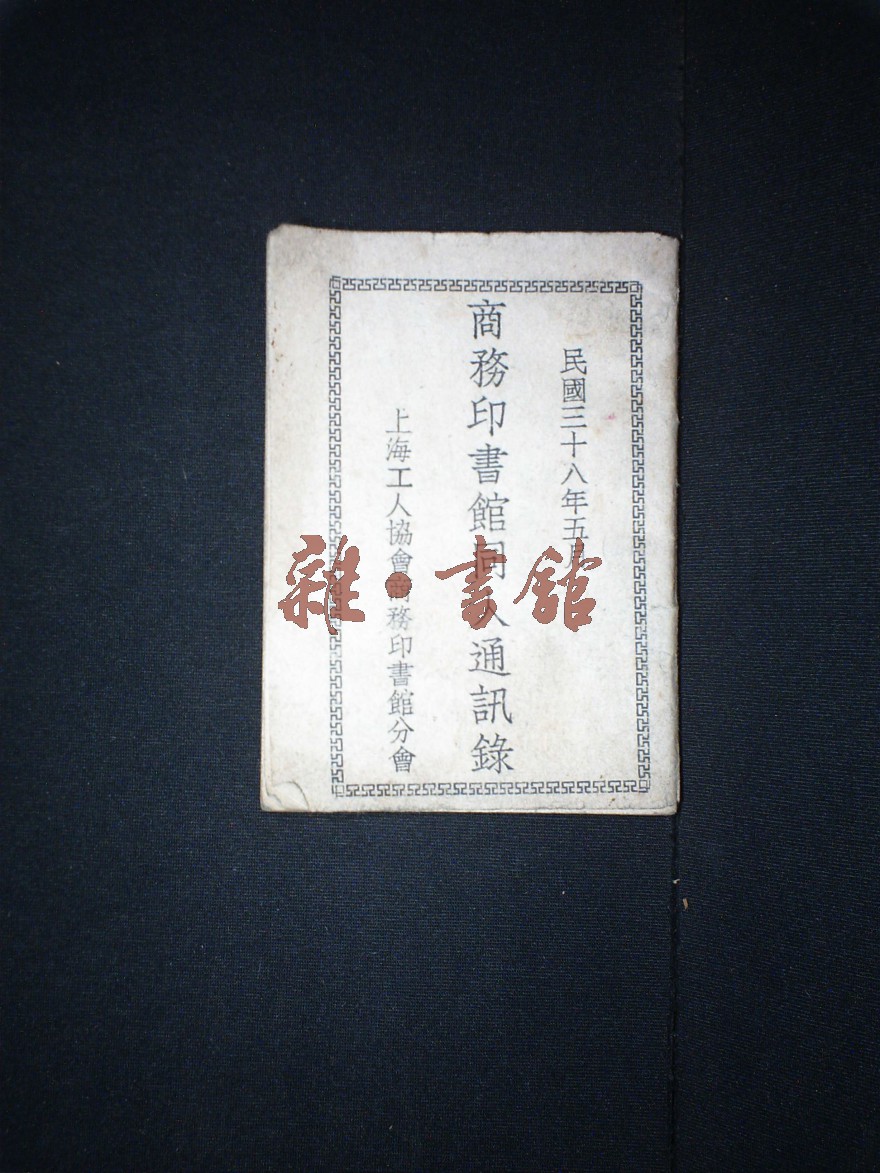 民國三十八年五月
商務印書館同人通訊錄
上海工人協會商務印書館分會
雜·書館